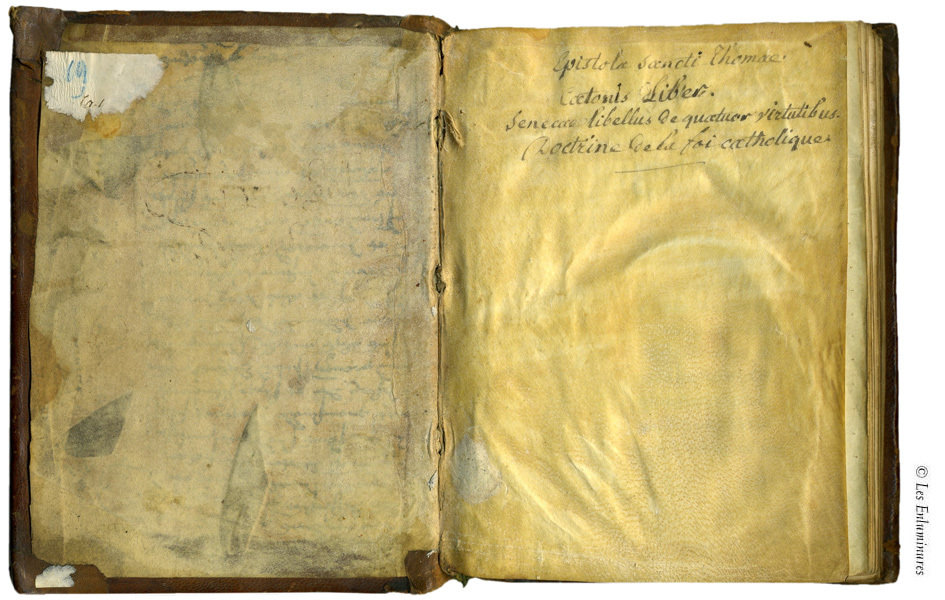 19
Epistola sancti Thomae.
Catonis Liber.
Senecae libellus de quatuor virtutibus.
Doctrine de la foi catholique.
© Les Enluminures